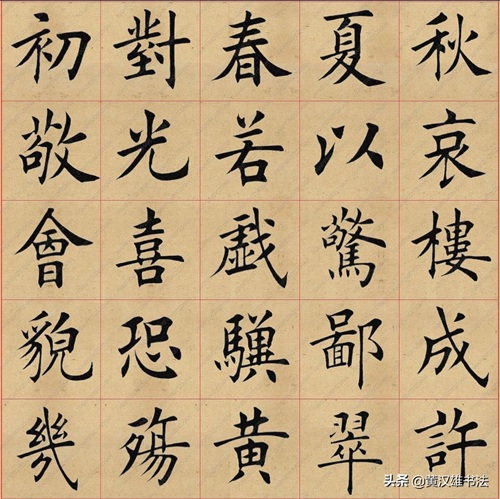 初對春夏秋
敬光若以哀
會喜戲驚樓
貌恐驥鄙成
幾殤黄翠許
头条 @黄汉雄书法